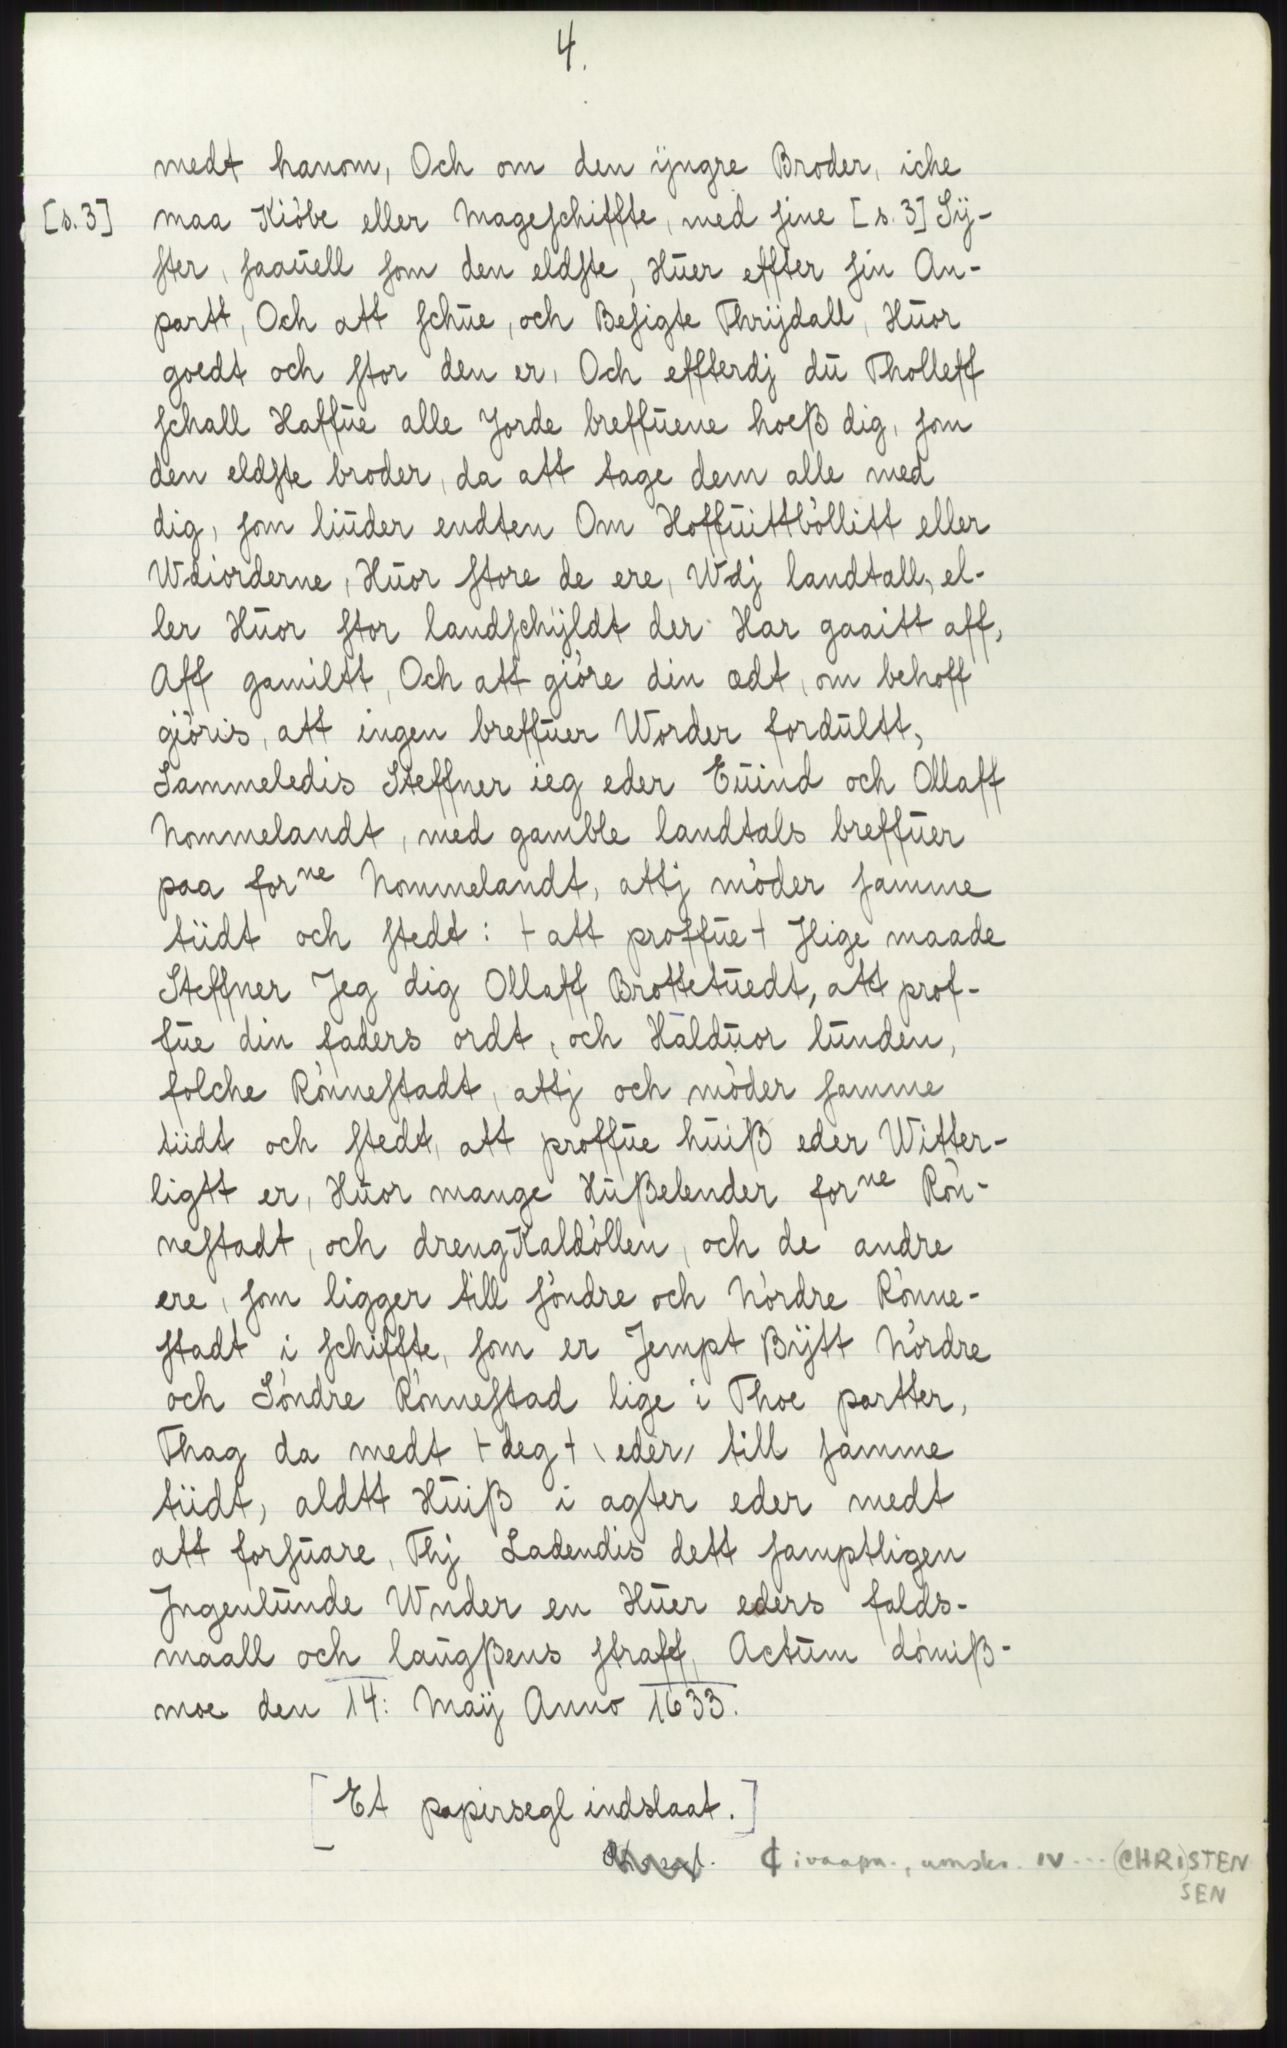 4.
medt hanom, Och om den ÿngre Broder, iche
[s.3] maa Kiöbe eller Mageschiffte, med sine [s.3] Sÿ-
ster, saauell som den eldste, Huer effter sin An-
partt, Och att schue, och Besigte Thrijdall, Huor
goedt och stor den er, Och effterdj du Tholleff
schall Haffue alle Jorde breffuene hoeß dig, som
den eldste broder, da att tage dem alle med
dig, som liuder endten Om Hoffuittböllitt eller
Wdiorderne, Huor store de ere, Wdj landtall, el-
ler Huor stor landschÿldt der Har gaaitt aff,
Aff gamiltt, Och att giöre din ædt, om behoff
giöris, att ingen breffuer Worder fordultt,
Sammeledis Steffner ieg eder Euind och Ollaff
Nommelandt, med gamble landtals breffuer
paa forne Nommelandt, attj möder samme
tiidt och stedt: + att proffue + Jlige maade
Steffner Jeg dig Ollaff Brottetuedt, att prof-
fue din faders ordt, och Halduor lunden,
folche Rönnestadt, attj och möder samme
tiidt och stedt, att proffue huiß eder Witter-
ligtt er, Huor mange Hußelender forne Rön-
nestadt, och dreng Kaldöllen, och de andre
ere, som ligger till söndre och Nördre Rönne-
stadt i schiffte, som er Jempt Bÿtt Nördre
och Söndre Rönnestad lige i Thoe partter,
Thag da medt + deg + \ eder / till samme
tiidt, aldtt Huiß i agter eder medt
att forsuare, Thj Ladendis dett samptligen
Jngenlunde Wnder en Huer eders falds-
maall och laugßens straff, Actum dömiß-
moe den 14: Maÿ Anno 1633.
[Et papirsegl indslaat.]
¢ i vaapn., umskr. IV --- (CHRI)STEN
SEN